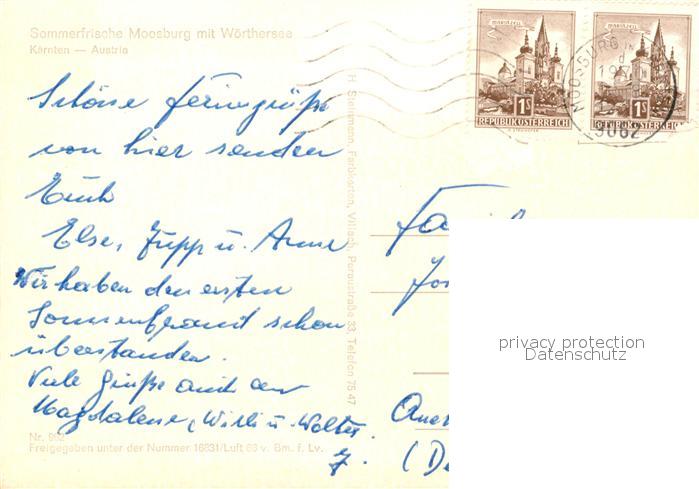 Sommerfrische Moosburg mit Wörthersee
Kärnten — Austria
Schöne Feriengrüße
von hier senden
Euch
Else, Jupp u. Anne
Wir haben den ersten
Sonnenbrand schon
überstanden.
Viele Grüße auch an
Magdalene, Willi u. Walter.
J.
Nr. 962
Freigegeben unter der Nummer 16831/Luft 63 v. Bm. f. Lv.
H. Steinmann, Farbkarten, Villach, Peraustraße 33, Telefon 75 47
MARIAZELL
1S
REPUBLIK ÖSTERREICH
MARIAZELL
1S
REPUBLIK ÖSTERREICH
MOOSBURG IN
9062
Fa
Jo
privacy protection
Datenschutz
(De